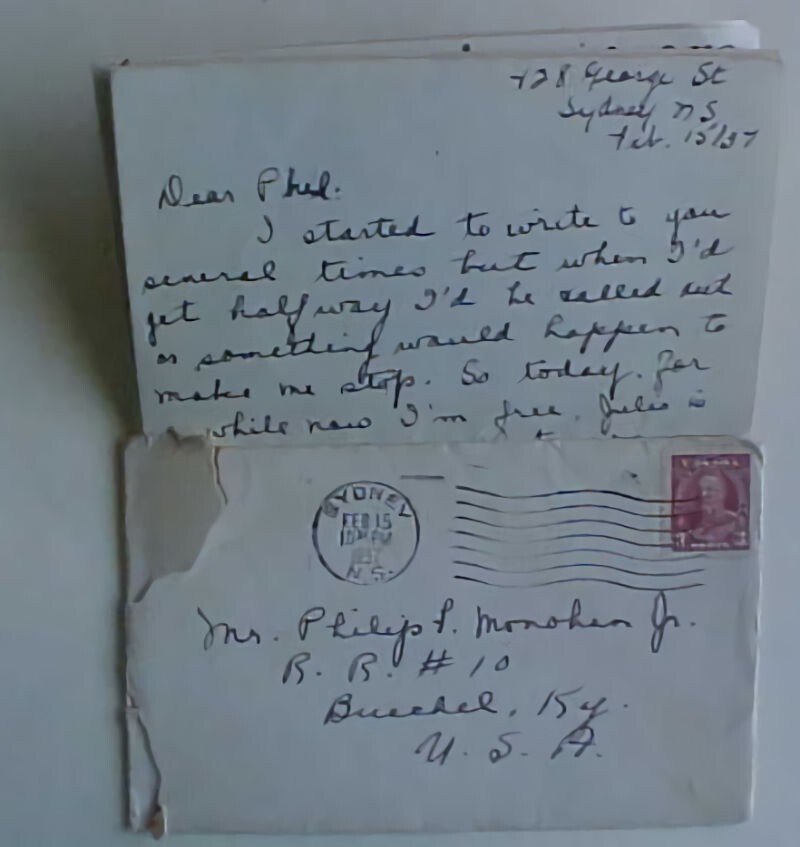 428 George St
Sydney NS
Feb. 15/37
Dear Phil.
I started to write to you
several times but when I'd
get halfway I'd be called out
or something would happen to
make me stop. So today. for
a while now I'm free. Julie is
SYDNEY
FEB 15
PM
1937
N.S.
Mr. Philip P. Monohan Jr.
R. R. # 10
Buechel, Ky.
U. S. A.